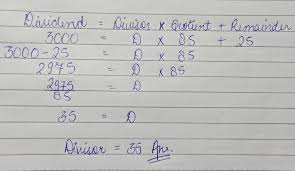 Dividend = Divisor × Quotient + Remainder
3000 = D × 85 + 25
3000-25 = D × 85
2975 = D × 85
2975/85 = D
35 = D
Divisor = 35 Ans.